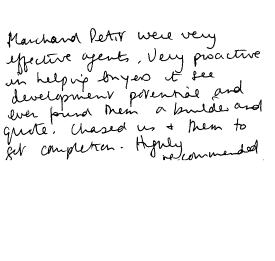 Marchand Petit were very
effective agents. Very proactive
in helping buyers to see
development potential and
even found them a builder and
quote. Chased us & them to
get completion. Highly
recommended.